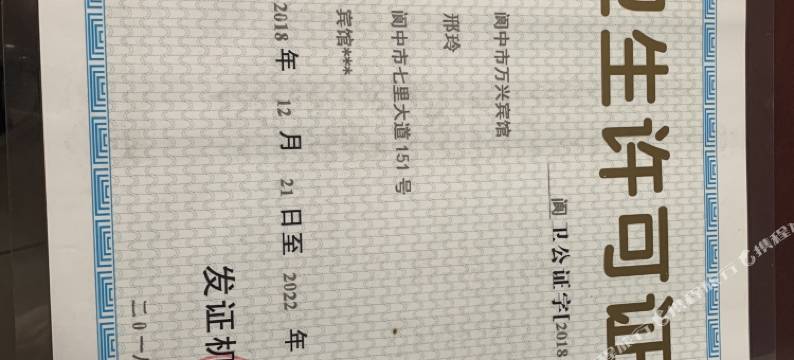 卫生许可证
阆卫公证字[2018
阆中市万兴宾馆
邢玲
阆中市七里大道151号
宾馆***
2018年12月21日至2022年
发证机
二0一八
携程旅行
携程旅行